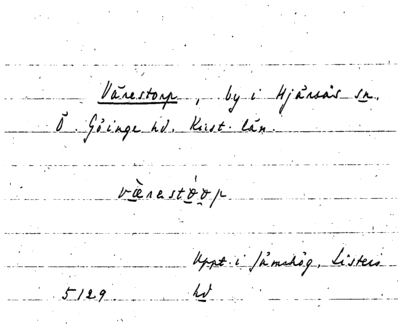 Vånestorp, by i Hjärsås sn.
Ö. Göinge hd. Krist. län.
værastóop
Uppt. i Jämshög, Listers
5129 hd